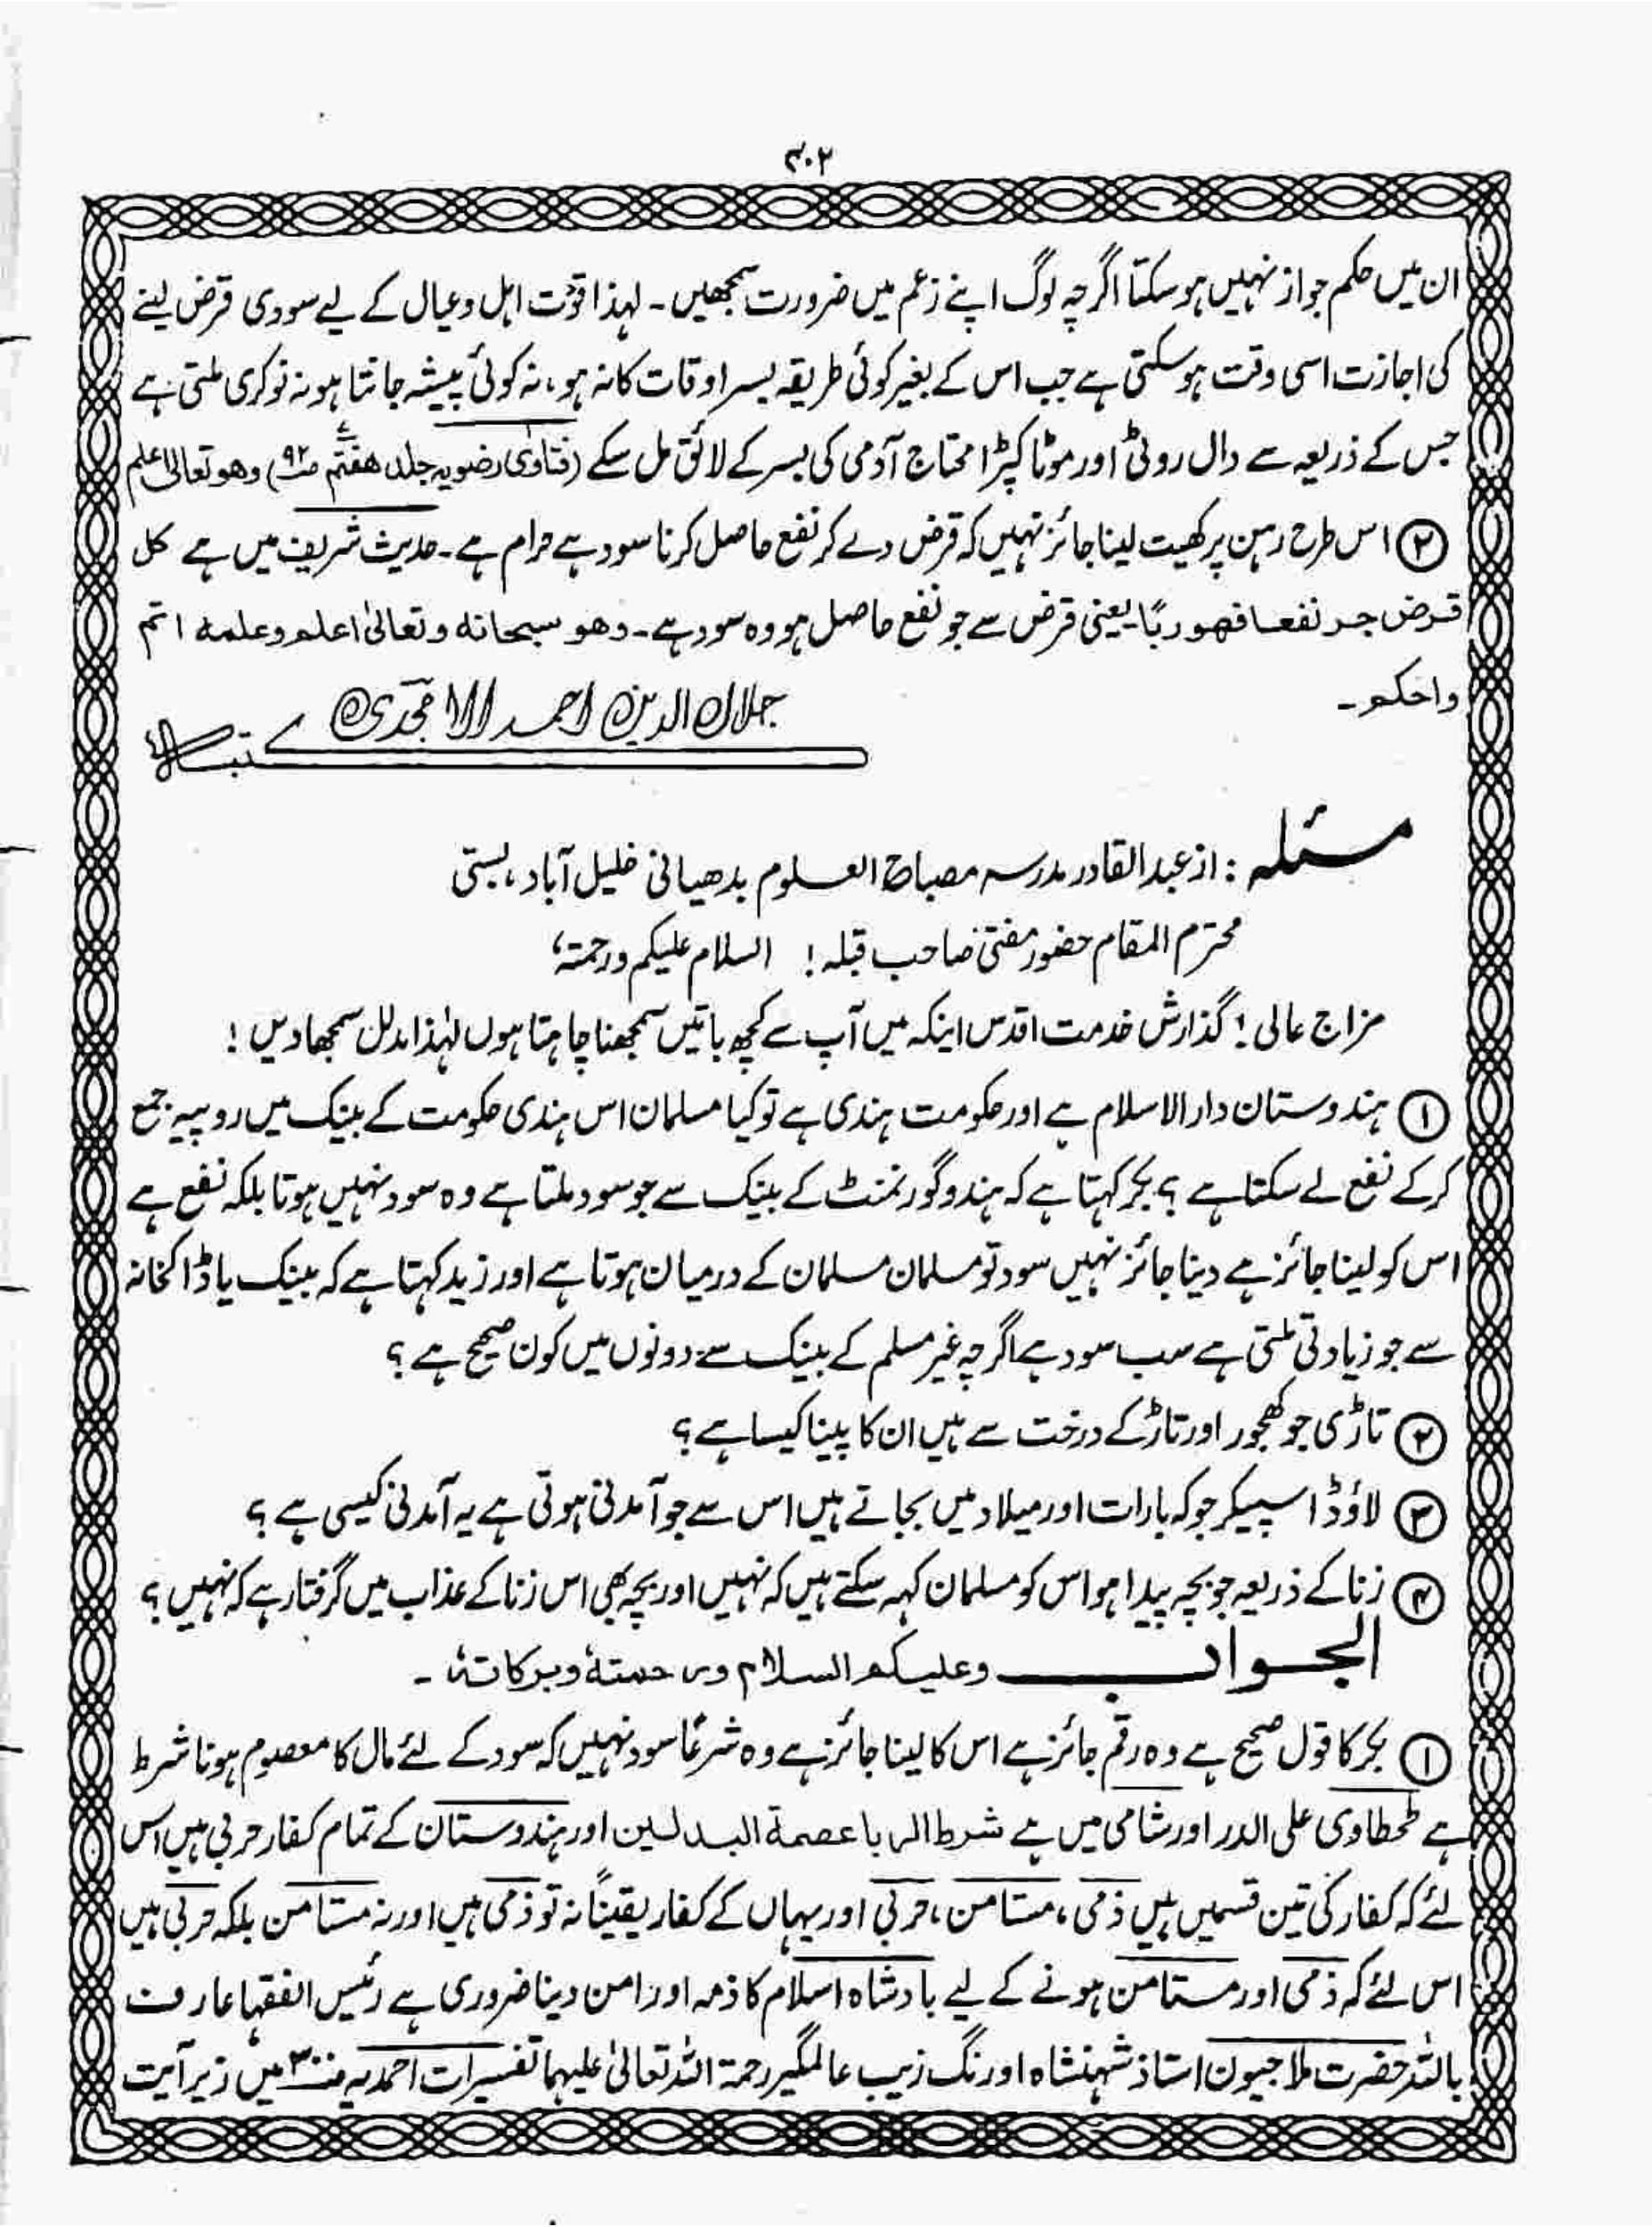 ۴۰۲
ان میں حکم جواز نہیں ہو سکتا اگرچہ لوگ اپنے زعم میں ضرورت سمجھیں۔ لہذا قوت اہل و عیال کے لیے سودی قرض لینے
کی اجازت اسی وقت ہو سکتی ہے جب اس کے بغیر کوئی طریقہ بسر اوقات کا نہ ہو، نہ کوئی پیشہ جانتا ہو نہ نوکری ملتی ہے
جس کے ذریعہ سے دال روٹی اور موٹا کپڑا محتاج آدمی کی بسر کے لائق مل سکے (فتاویٰ رضویہ جلد ھفتم ص۹۲) وھو تعالیٰ اعلم
② اس طرح رہن پر کھیت لینا جائز نہیں کہ قرض دے کر نفع حاصل کرنا سود ہے حرام ہے۔ حدیث شریف میں ہے کل
قرض جر نفعا فھو ربًا یعنی قرض سے جو نفع حاصل ہو وہ سود ہے۔ وھو سبحانه وتعالیٰ اعلم وعلمه اتم
واحکم۔
جلال الدین احمد الامجدی
کتبہ
مسئلہ : از عبد القادر مدرسہ مصباح العلوم بدھیانی خلیل آباد، بستی
محترم المقام حضور مفتی صاحب قبلہ! السلام علیکم ورحمتہ،
مزاج عالی! گذارش خدمت اقدس اینکہ میں آپ سے کچھ باتیں سمجھنا چاہتا ہوں لہٰذا مدلل سمجھا دیں!
① ہندوستان دار الاسلام ہے اور حکومت ہندی ہے تو کیا مسلمان اس ہندی حکومت کے بینک میں روپیہ جمع
کر کے نفع لے سکتا ہے؟ بکر کہتا ہے کہ ہندو گورنمنٹ کے بینک سے جو سود ملتا ہے وہ سود نہیں ہوتا بلکہ نفع ہے
اس کو لینا جائز ہے دینا جائز نہیں سود تو مسلمان مسلمان کے درمیان ہوتا ہے اور زید کہتا ہے کہ بینک یا ڈاکخانہ
سے جو زیادتی ملتی ہے سب سود ہے اگرچہ غیر مسلم کے بینک سے دونوں میں کون صحیح ہے؟
② تاڑی جو کھجور اور تاڑ کے درخت سے ہیں ان کا پینا کیسا ہے؟
③ لاؤڈ اسپیکر جو کہ بارات اور میلاد میں بجاتے ہیں اس سے جو آمدنی ہوتی ہے یہ آمدنی کیسی ہے؟
④ زنا کے ذریعہ جو بچہ پیدا ہو اس کو مسلمان کہہ سکتے ہیں کہ نہیں اور بچہ بھی اس زنا کے عذاب میں گرفتار ہے کہ نہیں؟
الجواب وعلیکم السلام ورحمتهٗ وبرکاتهٗ۔
① بکر کا قول صحیح ہے وہ رقم جائز ہے اس کا لینا جائز ہے وہ شرعًا سود نہیں کہ سود کے لئے مال کا معصوم ہونا شرط
ہے طحطاوی علی الدر اور شامی میں ہے شرط الربا عصمة البدلین اور ہندوستان کے تمام کفار حربی ہیں اس
لئے کہ کفار کی تین قسمیں ہیں ذمی، مستامن، حربی اور یہاں کے کفار یقینًا نہ تو ذمی ہیں اور نہ مستامن بلکہ حربی ہیں
اس لئے کہ ذمی اور مستامن ہونے کے لیے بادشاہ اسلام کا ذمہ اور امن دینا ضروری ہے رئیس الفقہا عارف
باللہ حضرت ملا جیون استاذ شہنشاہ اورنگ زیب عالمگیر رحمۃ اللہ تعالیٰ علیہما تفسیرات احمدیہ ص۳۰۰ میں زیر آیت